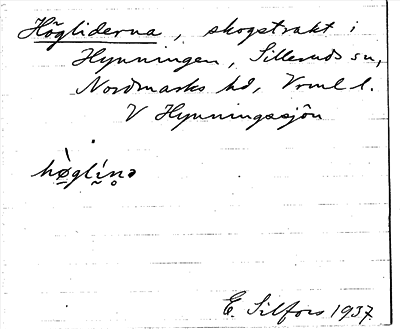 Högliderna, skogstrakt i
Hynningen, Silleruds sn,
Nordmarks hd, Vrml l.
V Hynningssjön
hø̀glı́n̥ə
E. Silfors 1937.